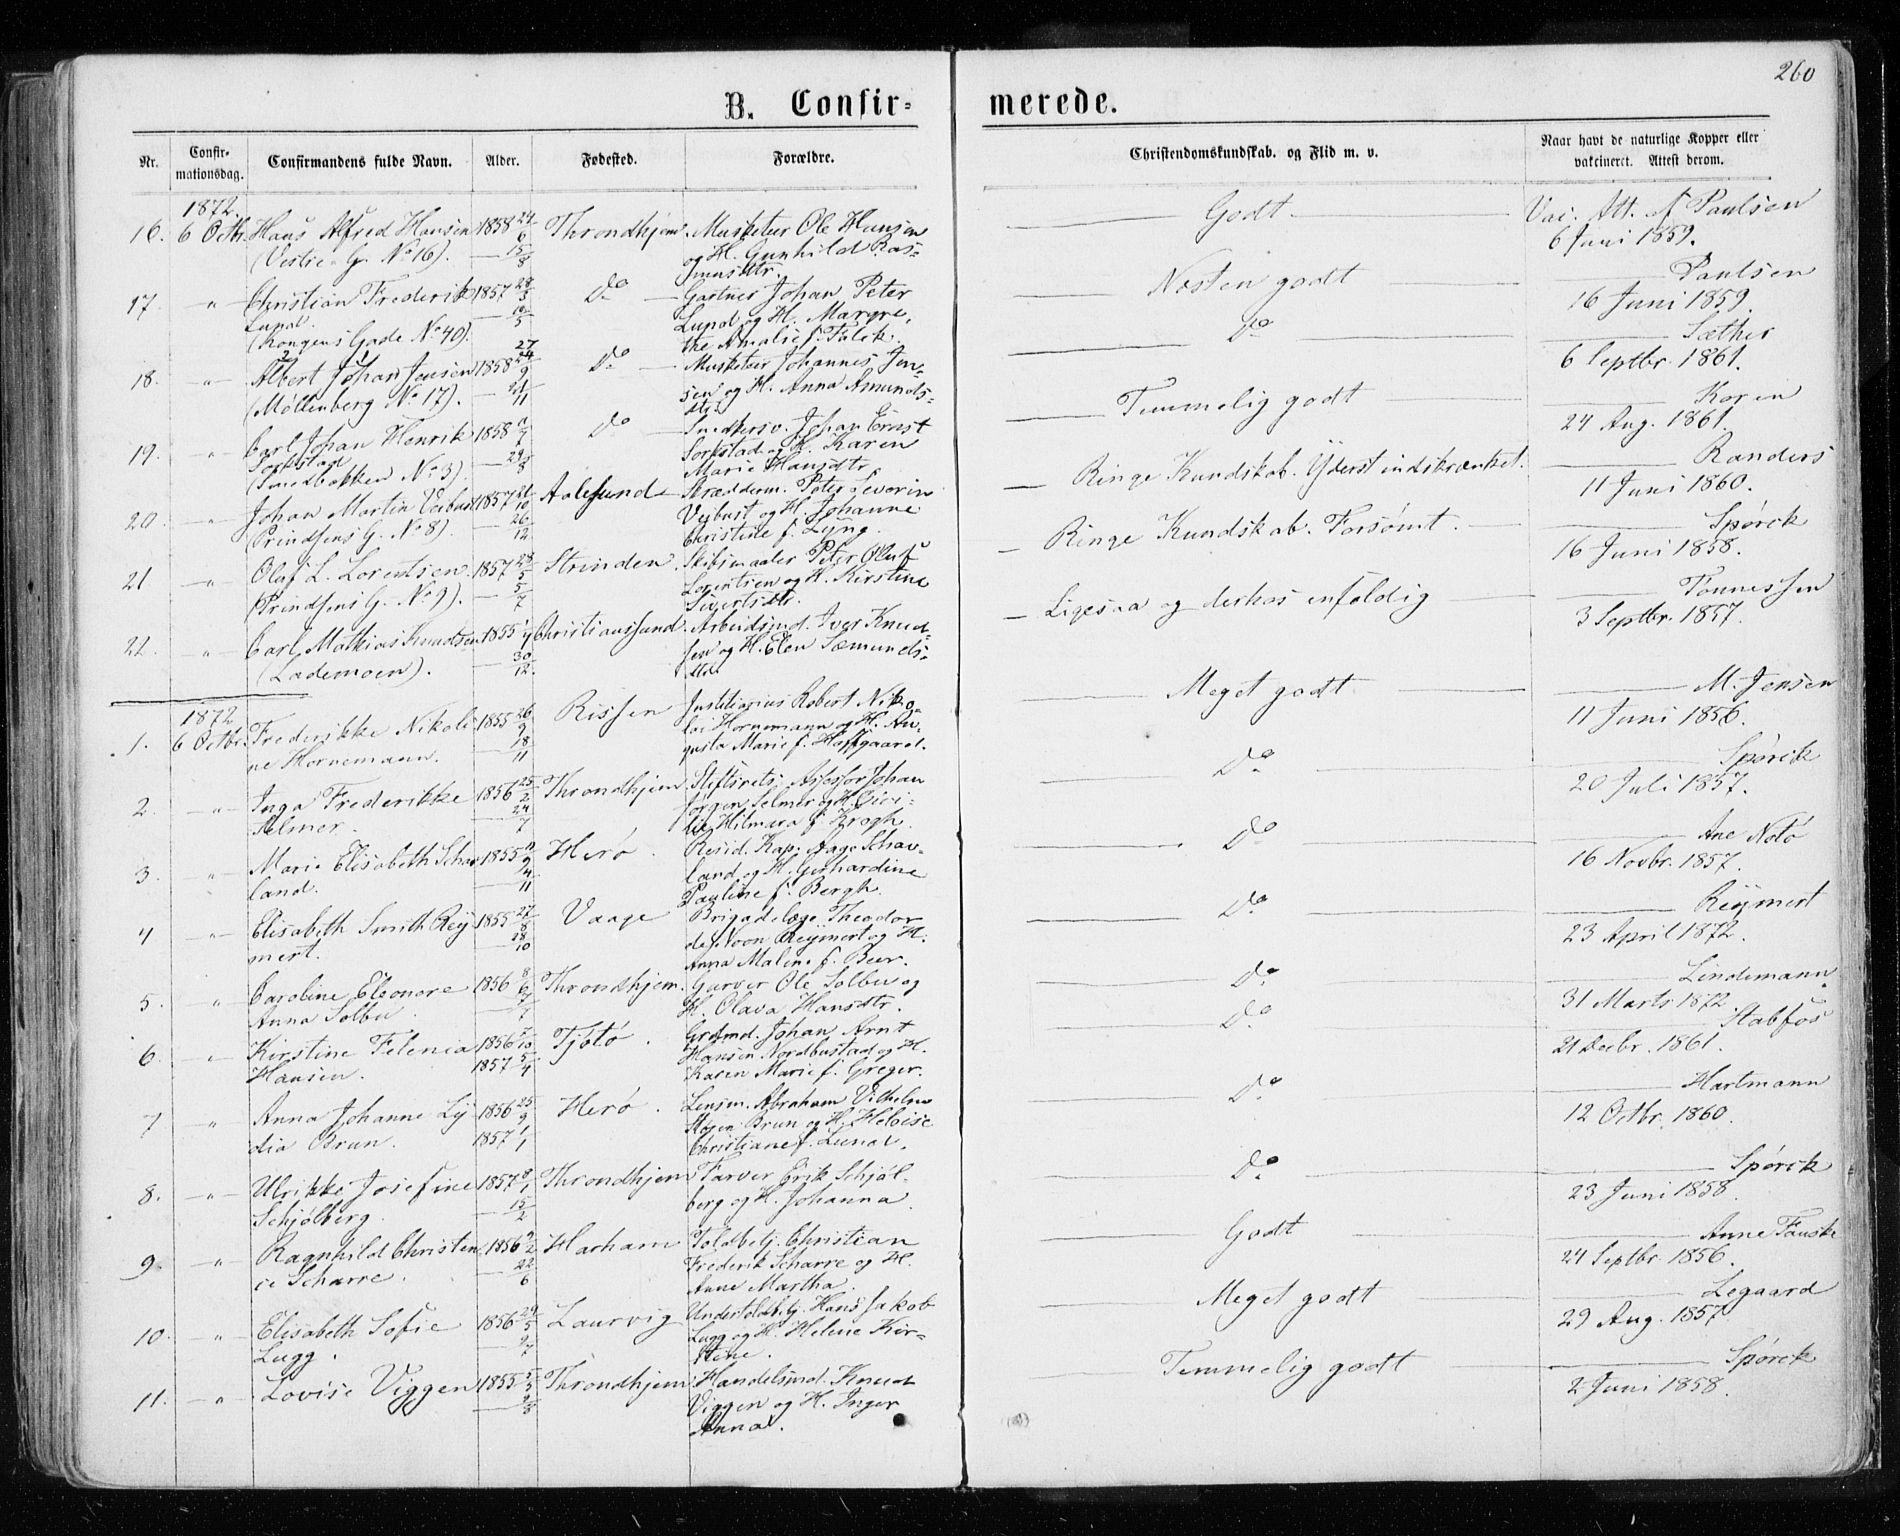 260
B. Confir-
merede.
Nr.
Confir-
mationsdag.
Confirmandens fulde Navn.
Alder.
Fødested.
Forældre.
Christendomskundskab. og Flid m. v.
Naar havt de naturlige Kopper eller
vakcineret. Attest derom.
1872.
16. 6 Octbr. Hans Alfred Hansen 1858 24/6 Throndhjem. Musketeer Ole Hansen
(Vestre G. No 16). og H. Gunhild Ras-
musdtr.
Godt Vac. Att. f Paulsen
6 Juni 1859.
17. " Christian Frederik 1857 28/3 Do Gartner Johan Peter
Lund. 10/5 Lund og H. Margre-
(Kongens Gade No 40). the Amalie f. Falck.
Næsten godt Paulsen
16 Juni 1859.
18. " Albert Johan Jensen 1858 Do Musketeer Johannes Jen-
(Møllenberg No 17). sen og H. Anna Amunds-
dtr.
Do Sæther
6 Septbr. 1861.
19. " Carl Johan Henrik 1858 Do Snedkersv. Johan Ernst
Sorkstad 29/8 Sorkstad og H. Karen
(Smedbakken No 3). Marie Hansdtr.
Temmelig godt Koren
24 Aug. 1861.
20. " Johan Martin Veibust 1857 21/10 Aalesund Skrædderm. Peter Severin
(Prindsens G. No 8). 26/12 Vejbust og H. Johanne
Christine f. Lyng.
Ringe Kundskab. Yderst indskrænket. Randers
11 Juni 1860.
21 " Olaf L. Lorentsen 1857 28/5 Strinden. Skibsmaaler Peter Oluf
(Prindsens G. No 9). 5/7 Lorentsen og H. Kirstine
Sivertsdtr.
Ringe Kundskab. Forsømt. Spørck
16 Juni 1858.
22. " Carl Mathias Knudtsen 1855 Christianssund. Arbeidsmd. Iver Knud-
(Lademoen). 30/12. sen og H. Elen Sæmunds-
dtr.
Ligesaa og derhos enfoldig Tønnessen
3 Septbr. 1857.
1872
1. 6 Octbr. Frederikke Nikoli- 1855 26/9 Rissen Justitiarius Robert Niko-
ne Hornemann. 18/11 lai Hornemann og H. Au-
gusta Marie f. Hoffgaard.
Meget godt M. Jensen
11 Juni 1856.
2. " Inga Frederikke 1856 25/2 Throndhjem Stiftsrets. Assessor Johan
Selmer. 24/7 Jørgen Selmer og H.
Hilmara f. Krogh.
Do Spørck
20 Juli 1857.
3. " Marie Elisabeth Schav- 1855 Herø. Resid. Kap. Aage Schav-
land. 4/11 land og H. Gerhardine
Pauline f. Bergh.
Do Ane Notø
16 Novbr. 1857.
4 " Elisabeth Smith Rey- 1855 27/8 Vaage Brigadelæge Theodor
mert. 28/10 de Noon Reymert og H.
Anna Malene f. Beer.
Do Reymert
23 April 1872.
5. " Caroline Eleonore 1856 8/6 Throndhjem. Garver Ole Solbu og
Anna Solbu. 7/7 H. Olava Hansdtr.
Do Lindemann.
31 Marts 1872
6. " Kirstine Felenia 1856 Tjøtø. Grdmd. Johan Arnt
Hansen. 1857 5/4 Hansen Nordbustad og H.
Karen Marie f. Greger.
Do Stabfos
21 Decbr. 1861.
7 " Anna Johanne Ly- 1856 25/9 Herø. Lensm. Abraham Vilhelm
dia Brun. 1857 1/1 Brun og H. Heloise
Christiane f. Lund.
Do Hartmann
12 Octbr. 1860.
8. " Ulrikke Josefine 1857 8/1 Throndhjem Farver Erik Schjøl-
Schjølberg. 15/2 berg og H. Johanna.
Do Spørck
23 Juni 1858.
9. " Ragnhild Christen- 1856 9/2 Harham Toldbetj. Christian
ce Scharre. 22/6 Frederik Scharre og H.
Anne Martha.
Godt Anne Fauske
24 Septbr. 1856.
10. " Elisabeth Sofie 1856 29/5 Laurvig Undertoldbetj. Hans Jakob
Lugg. 9/7 Lugg og H. Helene Kir-
stine.
Meget godt Legaard
29 Aug. 1857
11. " Lovise Viggen 1855 5/5 Throndhjem. Handelsmd. Knud
Viggen og H. Inger
Anna.
Temmelig godt Spørck
2 Juni 1858.